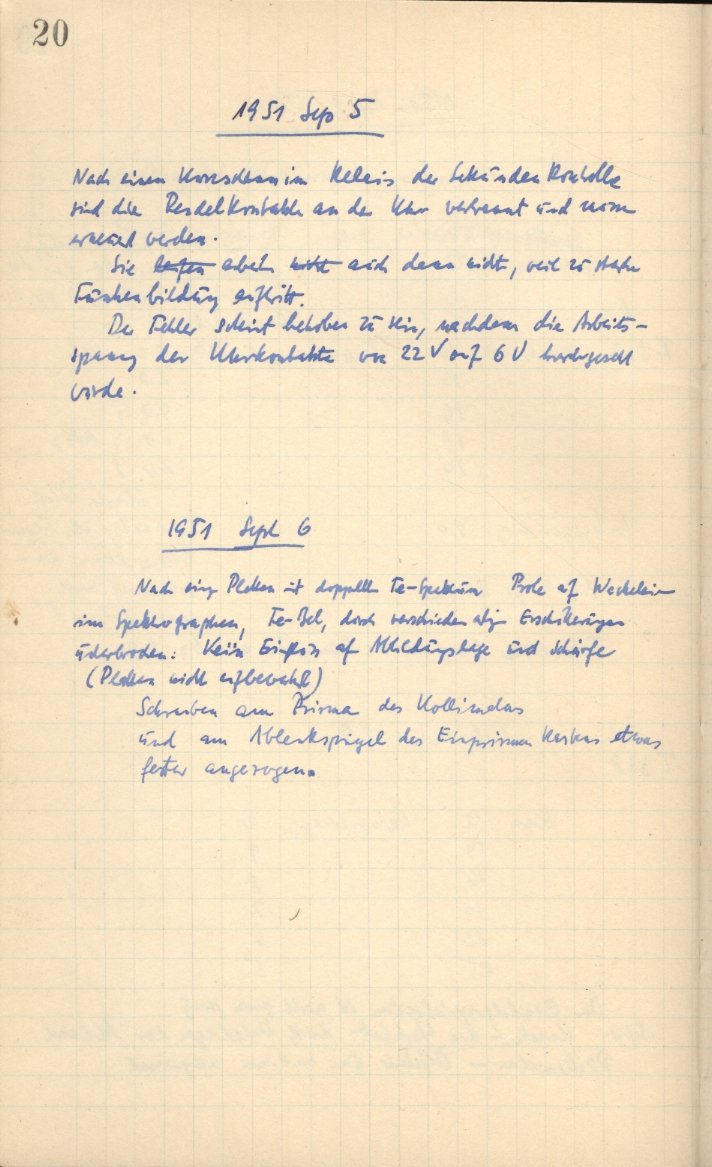 20
1951 Sep 5
Nach einem Kurzschluss im Relais der Sekundenkontrolle
sind die Pendelkontakte an der Uhr verbrannt und müssen
erneuert werden.
Sie laufen arbeiten nicht auch dann nicht, weil zu starke
Funkenbildung auftritt.
Der Fehler scheint behoben zu sein, nachdem die Arbeits-
spannung der Uhrkontakte von 22 V auf 6 V herabgesetzt
wurde.
1951 Sept 6
Nach einer Platten mit doppeltem Fe-Spektrum Probe auf Wackeleien
im Spektrographen, Fe-Bel, durch verschiedenartige Erschütterungen
unterbrochen: Kein Einfluss auf Abbildungslage und Schärfe
(Platten nicht aufbewahrt)
Schrauben am Prisma des Kollimators
und am Ablenkspiegel des Einprismen Kastens etwas
fester angezogen.